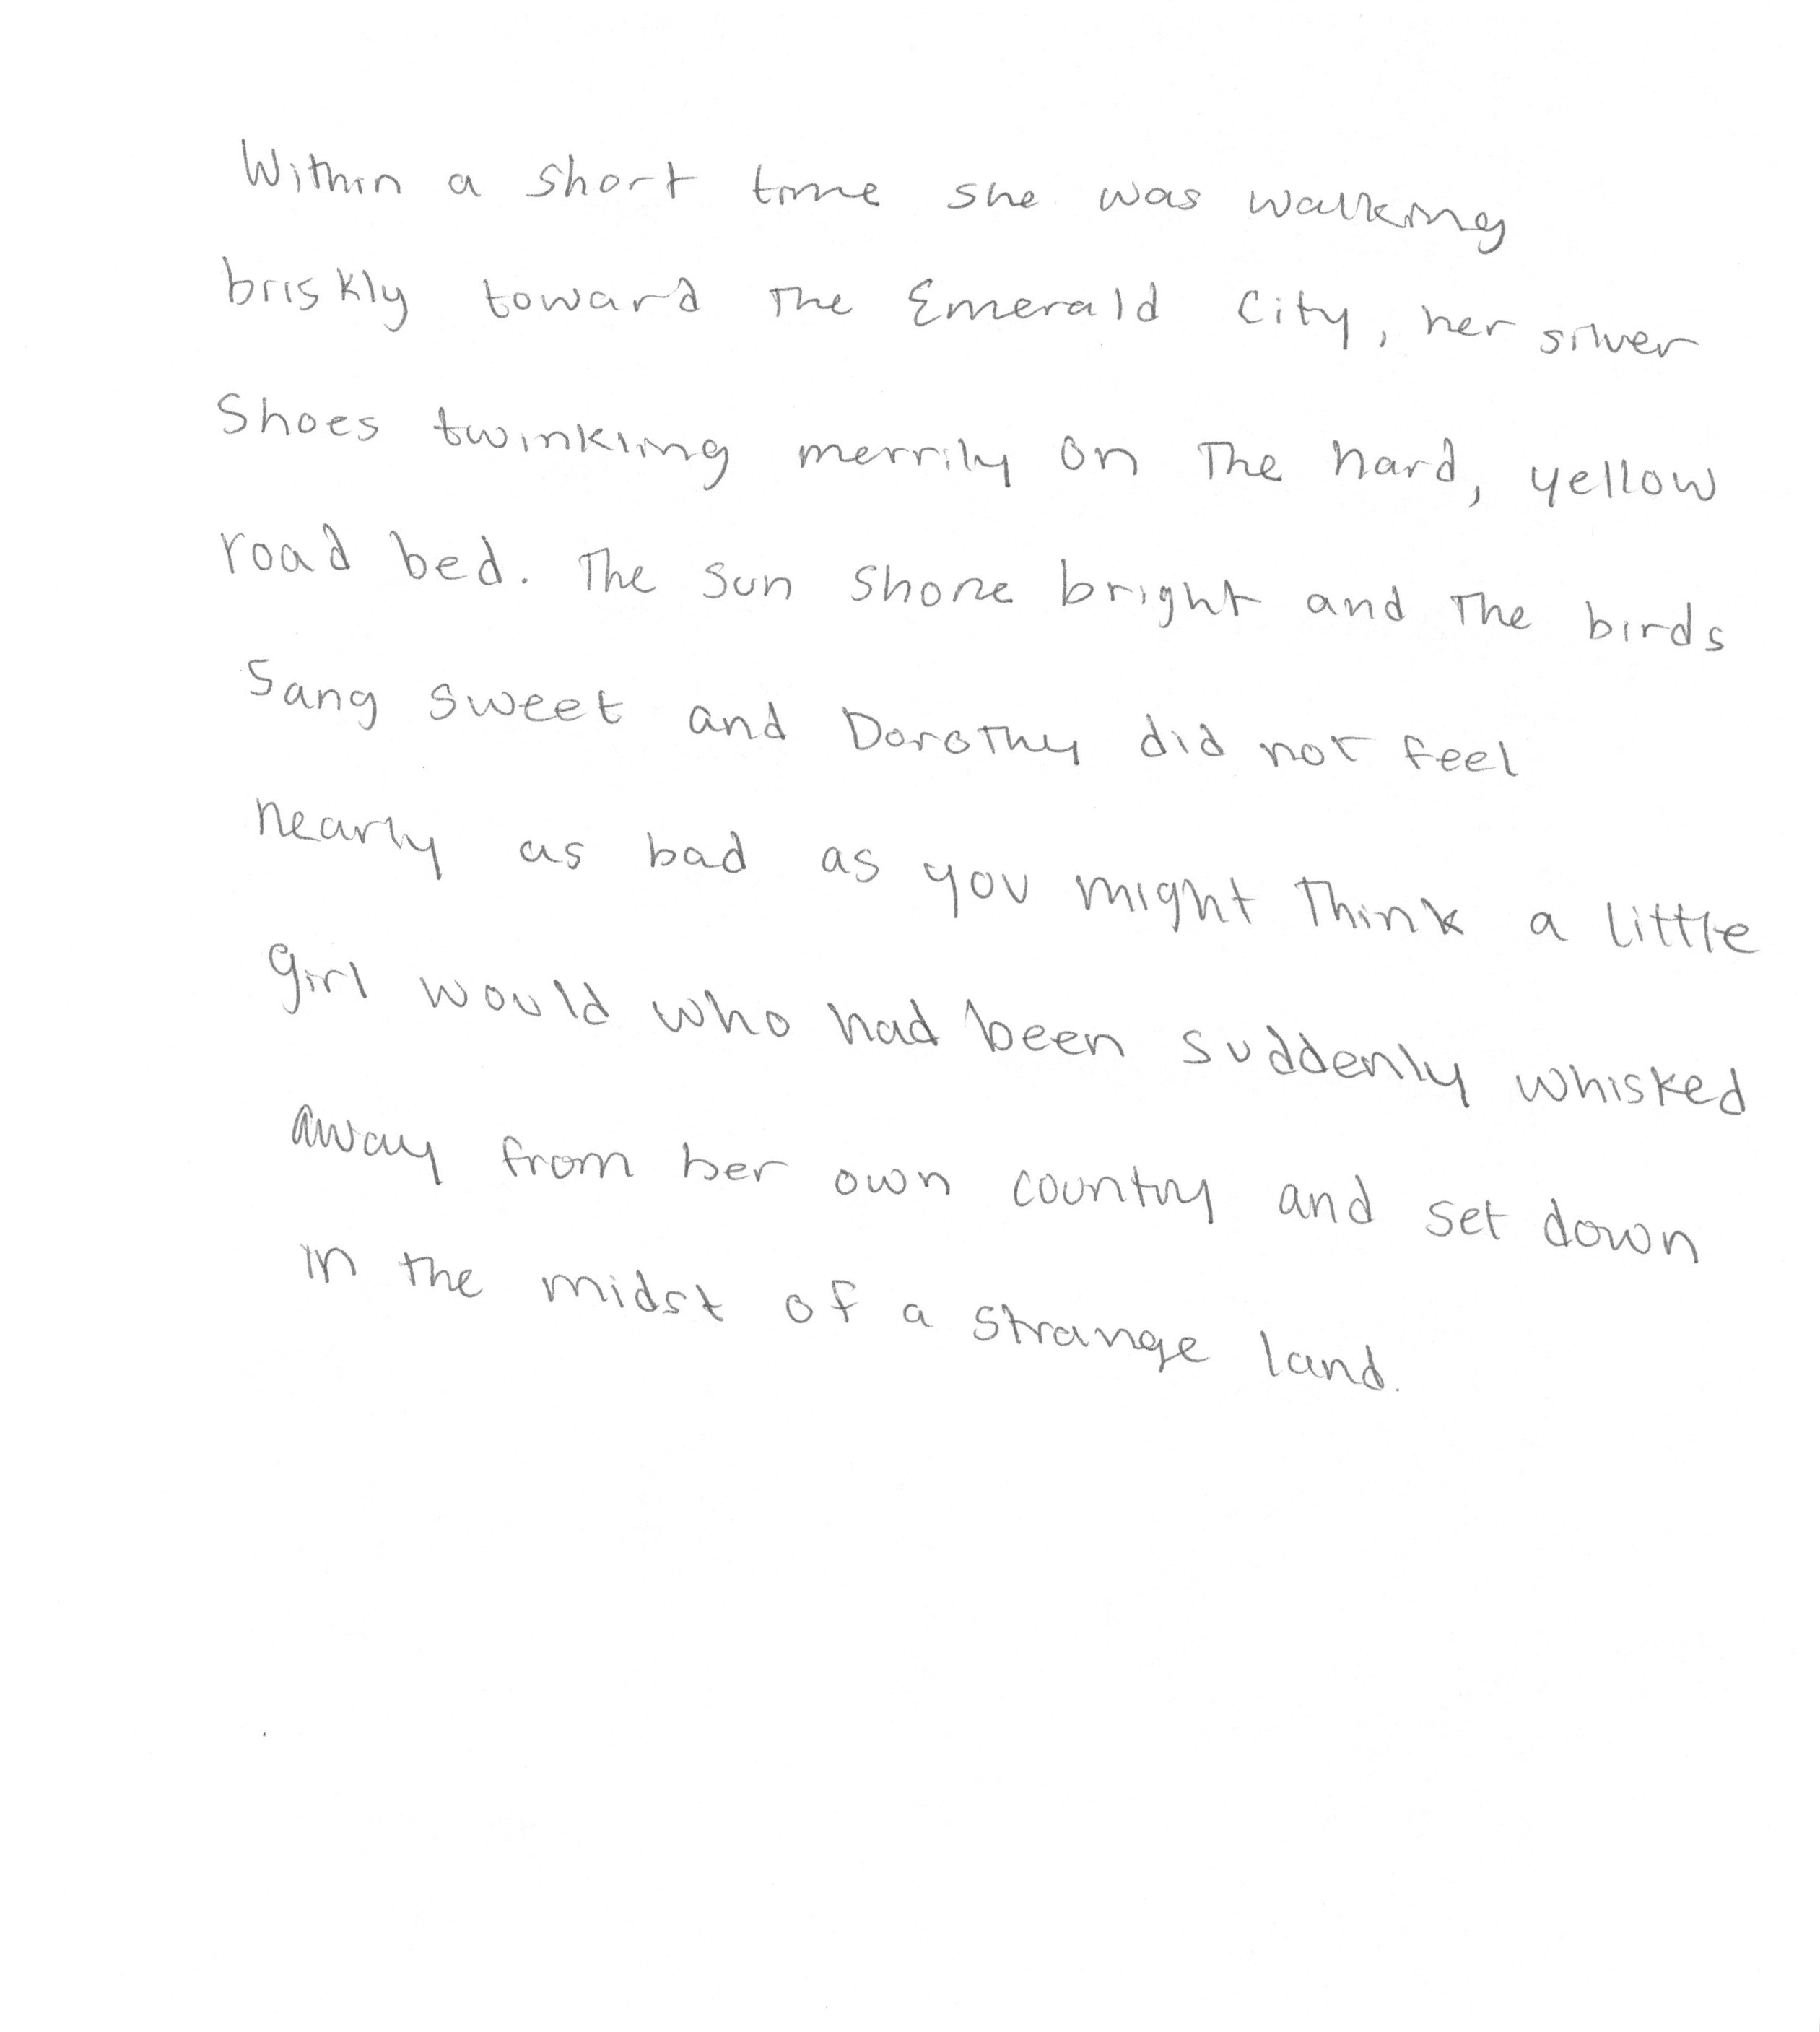 Within a short time she was walking
briskly toward the Emerald City, her silver
shoes twinkling merrily on the hard, yellow
road bed. The sun shone bright and the birds
sang sweet and Dorothy did not feel
nearly as bad as you might think a little
girl would who had been suddenly whisked
away from her own country and set down
in the midst of a strange land.